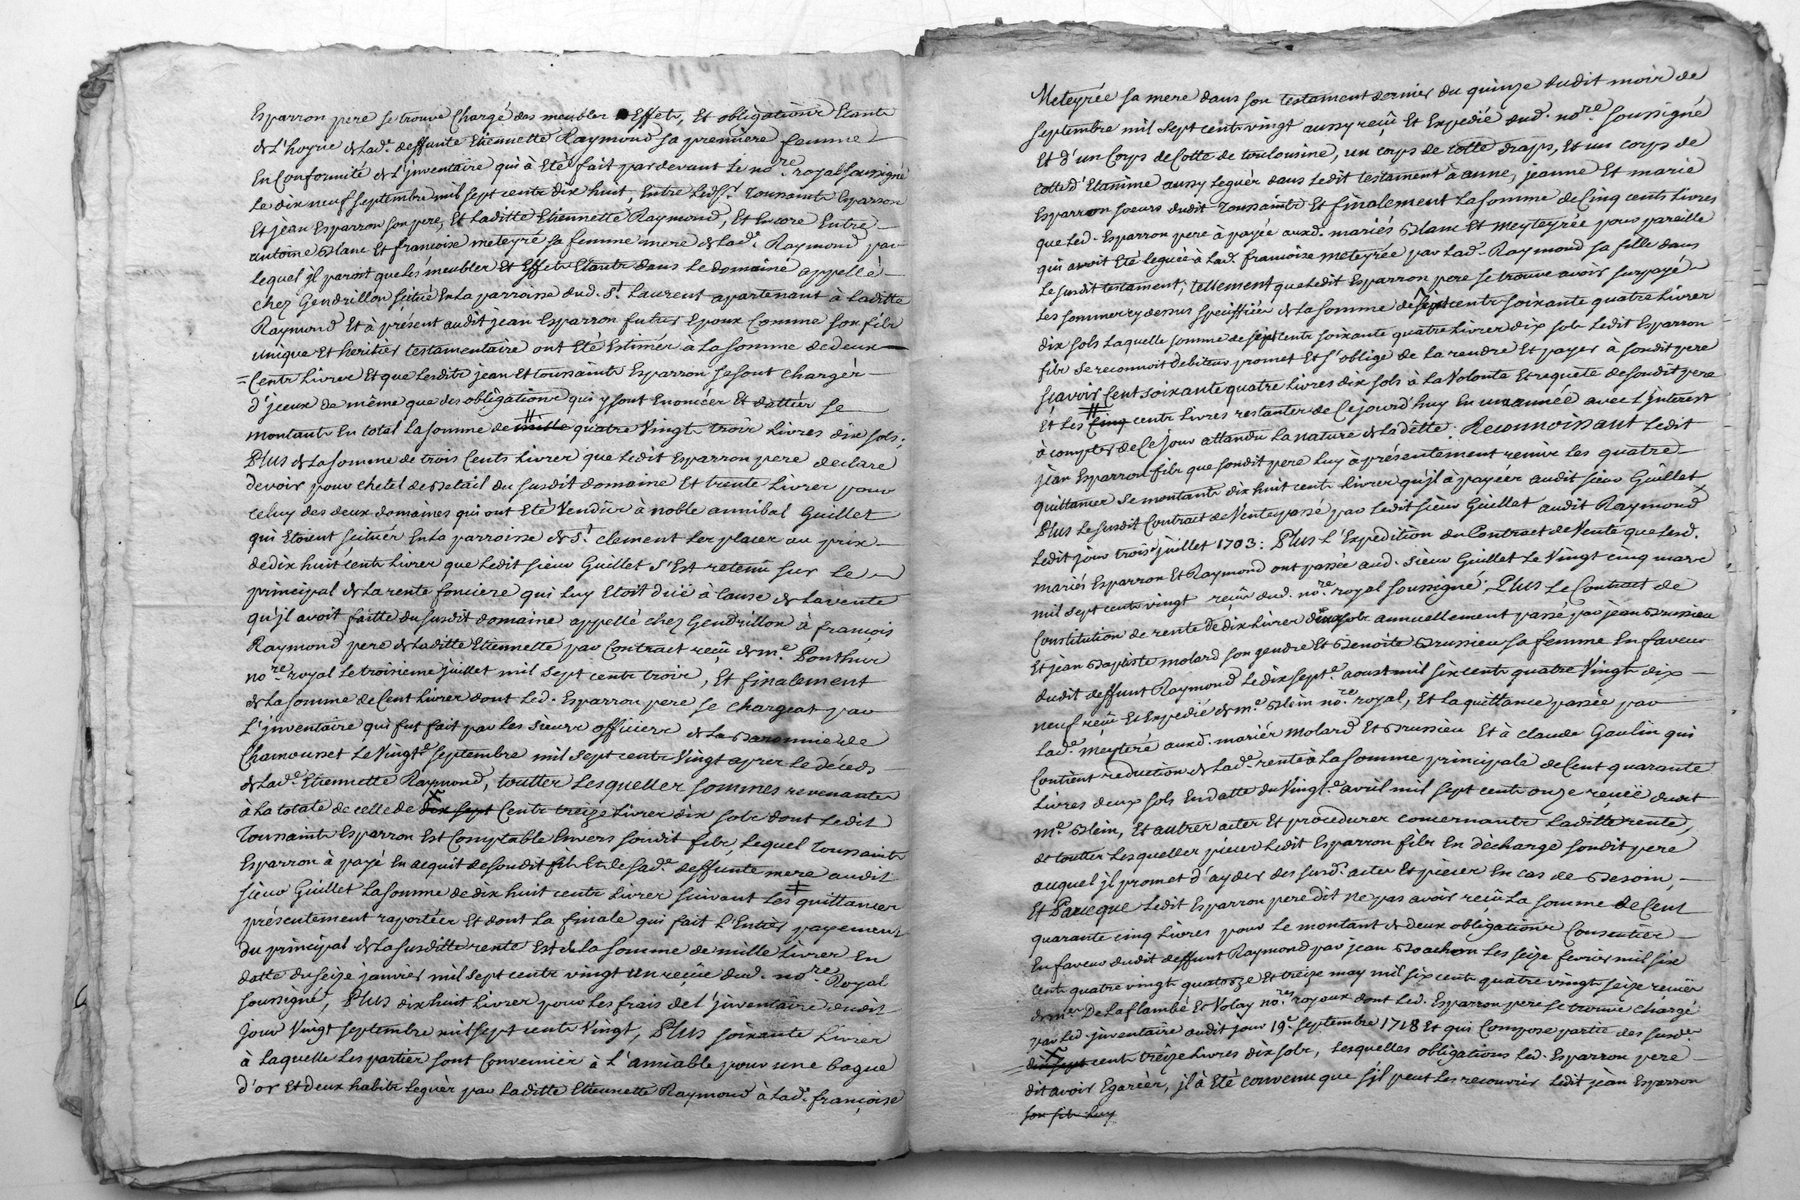 Esparron pere se trouve Chargé des meubles Effets, Et obligations Etants
de L'hoyrie de Lade. deffunte Etiennette Raymond sa premiere femme
En Conformité de L'jnventaire qui à Eté fait par devant Le nore. royal soussigné
Le dix neuf septembre mil sept cents dix huit, Entre Ledst. Toussaints Esparron
Et jean Esparron son pere, Et Laditte Etiennette Raymond, Et Encore Entre
antoine Blanc Et françoise meteyré sa femme mere de Lade. Raymond par
lequel jl paroit que Les meubles Et Effets Etants dans Le domaine appellé
chez Gendrillon scitué En La parroisse dud. St. Laurent apartenant à Laditte
Raymond Et à présent audit jean Esparron futur Epoux Comme son fils
unique Et heritier testamentaire ont Eté Estimés à La somme de deux
Cents Livres Et que Lesdits jean Et toussaints Esparron se sont Chargés
d'jceux de même que des obligations qui y sont Enoncées Et dattées se
montants En total La somme de mille quatre Vingts trois Livres dix sols;
Plus de La somme de trois Cents Livres que Ledit Esparron pere declare
devoir pour chetel de Betail du susdit domaine Et trente Livres pour
celuy des deux domaines qui ont Eté Vendus à noble annibal Guillet
qui Etoient scitués En La parroisse de St. clement Les places au prix
de dix huit cents Livres que Ledit sieur Guillet s'Est retenu sur Le
principal de La rente fonciere qui Luy Etoit düe à Cause de La vente
qu'jl avoit faitte du susdit domaine appellé chez Gendrillon à françois
Raymond pere de Laditte Etiennette par Contract reçû de me. Ponthus
nore. royal Le troisieme juillet mil sept cents trois, Et finalement
de La somme de Cent Livres dont Led. Esparron pere se chargeat par
L'jnventaire qui fut fait par Les sieurs officiers de La Baronnie de
Chamousset Le Vingte. septembre mil sept cents Vingt apres Le décéds
de Lade. Etiennette Raymond, touttes Lesquelles sommes revenantes
à La totale de celle de dix sept Cents treize Livres dix sols dont Ledit
Toussaints Esparron Est Comptable Envers sondit fils, Lequel Toussaints
Esparron à payé En acquit de sondit fils Et de Lade. deffunte mere audit
sieur Guillet La somme de dix huit cents Livres suivant Les quittances
présentement raportées Et dont La finale qui fait L'Entier payement
du principal de La susditte rente Est de La somme de mille Livres En
datte du seize janvier mil sept cents vingt un reçüe dud. nore. Royal
soussigné, Plus dix huit Livres pour Les frais de L'jnventaire dudit
jour Vingt septembre mil sept cents Vingt, Plus soixante Livres
à Laquelle Les parties sont Convenües à L'amiable pour une bague
d'or Et deux habits Legués par Laditte Etiennette Raymond à Lade. françoise
Meteyrée sa mere dans son testament dernier du quinze dudit mois de
septembre mil sept cents vingt aussy reçû Et Expedié dud. nore. soussigné
Et d'un Corps de Cotte de toulousine, un corps de cotte draps, Et un corps de
cotte d'Etamine aussy Legués dans Ledit testament à anne, jeanne Et marie
Esparron soeurs dudit Toussaints Et finalement La somme de Cinq cents Livres
que Led. Esparron pere à payée auxd. mariés Blanc Et Meyteyrée pour pareille
qui avoit Eté Leguée à Lade. françoise meteyrée par Lade. Raymond sa fille dans
Le susdit testament; tellement que Ledit Esparron pere se trouve avoir surpayé
Les sommes cy dessus speciffiées de La somme de sept cents soixante quatre Livres
dix sols Laquelle somme de sept cents soixante quatre Livres dix sols Ledit Esparron
fils se reconnoit debiteur promet Et s'oblige de La rendre Et payer à sondit pere
sçavoir Cent soixante quatre Livres dix sols à La Volonté Et requête de sondit pere
Et Les Cinq cents Livres restantes de Cejourd'huy En un année avec L'jnterest
à compter de Ce jour attendu La nature de La dette. Reconnoissant Ledit
jean Esparron fils que sondit pere Luy à présentement remis Les quatre
quittances se montants dix huit cents Livres qu'jl à payées audit sieur Guillet
Plus Le susdit Contract de Vente passé par Ledit sieur Guillet audit Raymond
Ledit jour troise. juillet 1703: Plus L'Expedition du Contract de Vente que Lesd.
mariés Esparron Et Raymond ont passée aud. sieur Guillet Le Vingt cinq mars
mil sept cents vingt reçûe dud. nore. royal soussigné; Plus Le Contract de
Constitution de rente de dix Livres dix sols annuellement passé par jean Brussieu
Et jean Baptiste molard son gendre Et Benoite Brussieu sa femme En faveur
dudit deffunt Raymond Le dix septe. aoust mil six cents quatre Vingts dix
neuf reçû Et Expedié de me. Blein nore. royal, Et La quittance passée par
Lade. meyteré auxd. mariés molard Et Brussieu Et à claude Gaulin qui
Contient reduction de Lade. rente à La somme principale de Cent quarante
Livres deux sols En datte du Vingte. avril mil sept cents onze reçüe dudit
me. Blein, Et autres actes Et procedures concernants Laditte rente,
de touttes Lesquelles pieces Ledit Esparron fils En décharge sondit pere
auquel jl promet d'ayder des susd. actes Et pieces En cas de Besoin,
Et Parceque Ledit Esparron pere dit ne pas avoir reçû La somme de Cent
quarante cinq Livres pour Le montant de deux obligations Consenties
En faveur dudit deffunt Raymond par jean Boachon Les seize fevrier mil six
cents quatre vingts quatorze Et treize may mil six cents quatre vingts seize reçües
de mes. De La flambé Et Volay nores. royaux dont Led. Esparron pere se trouve chargé
par Led. jnventaire audit jour 19e. septembre 1718 Et qui Compose partie des susdes.
dix sept cents treize Livres dix sols, Lesquelles obligations Led. Esparron pere
dit avoir Egarées, jl à Eté convenu que s'jl peut Les recouvrer Ledit jean Esparron
son fils Luy